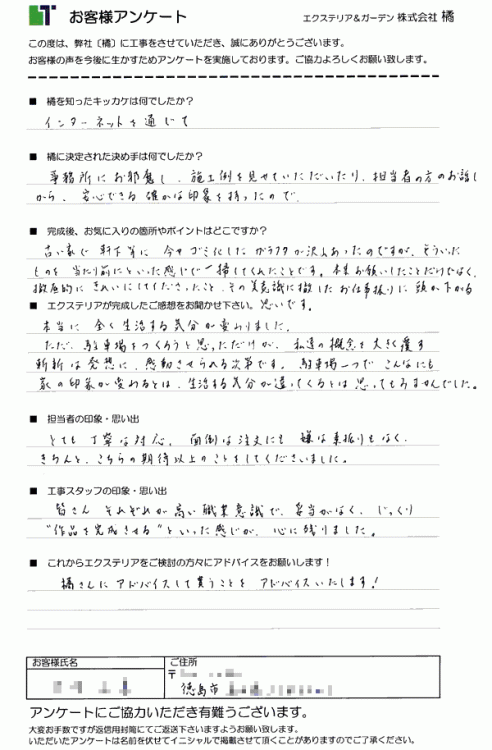 お客様アンケート
エクステリア＆ガーデン 株式会社 橘
この度は、弊社〔橘〕に工事をさせていただき、誠にありがとうございます。
お客様の声を今後に生かすためアンケートを実施しております。ご協力よろしくお願い致します。
■ 橘を知ったキッカケは何でしたか？
インターネットを通じて
■ 橘に決定された決め手は何でしたか？
事務所にお邪魔し、施工例を見せていただいたり、担当者の方のお話し
から、安心できる確かな印象を持ったので。
■ 完成後、お気に入りの箇所やポイントはどこですか？
古い家で 軒下等に 今やゴミ化した ガラクタが沢山あったのですが、そういった
ものを 当たり前にといった感じで一掃してくれたことです。本来お願いしたことだけではなく、
徹底的に きれいにしてくださったこと、その美意識に徹した お仕事振りに 頭が下がる
■ エクステリアが完成したご感想をお聞かせ下さい。思いです。
本当に 全く生活する気分が変わりました。
ただ、駐車場をつくろうと思っただけが、私達の概念を大きく覆す
斬新な発想に、感動させられる次第です。駐車場一つで こんなにも
家の印象が変わるとは、生活する気分が違ってくるとは 思ってもみませんでした。
■ 担当者の印象・思い出
とても 丁寧な対応。 面倒な注文にも 嫌な素振りもなく、
きちんと、こちらの期待以上のことをしてくださいました。
■ 工事スタッフの印象・思い出
皆さん それぞれが高い職業意識で、妥当がなく、じっくり
“作品を完成させる”といった感じが、心に残りました。
■ これからエクステリアをご検討の方々にアドバイスをお願いします！
橘さんに アドバイスして貰うことを アドバイスいたします！
お客様氏名
ご住所
〒
徳島市
アンケートにご協力いただき有難うございます。
大変お手数ですが返信用封筒にてご返送下さいますようお願い致します。
いただいたアンケートは名前を伏せてイニシャルで掲載させて頂くことがありますのでご了承ください。